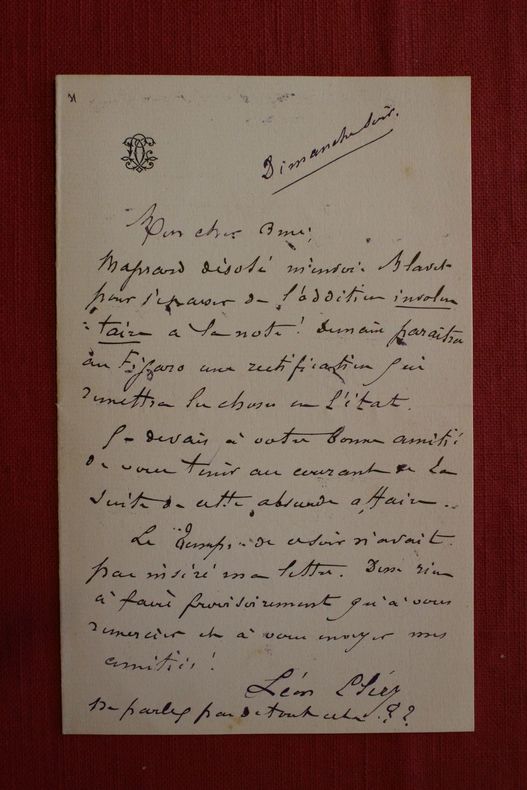 Dimanche soir.
Mon cher ami,
Magnard désolé m'envoie Blavet
pour s'excuser de l'addition involon
- taire à la note! Demain paraîtra
au Figaro une rectification qui
remettra les choses en l'état.
Je devais à votre bonne amitié
de vous tenir au courant de la
suite de cette absurde affaire..
Le Temps de ce soir n'avait
pas inséré ma lettre. Donc rien
à faire provisoirement qu'à vous
remercier et à vous envoyer mes
amitiés!
Léon
Ne parlez pas de tout cela.??